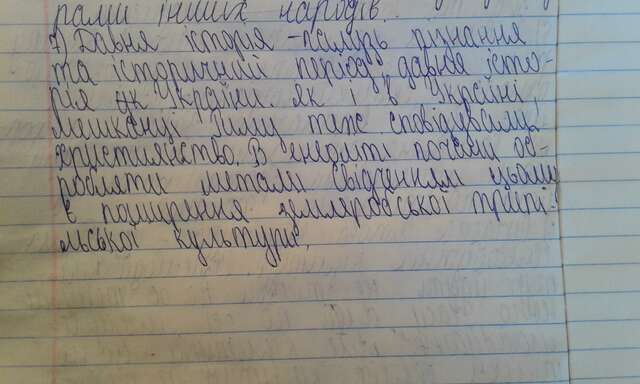 рами інших народів.
7) Давня історія - галузь пізнання
та історичний період, давня істо-
рія як України. Як і в Україні,
мешканці Риму теж сповідували
християнство. В енеоліті почали об-
робляти метали свідченням цьому
є поширення землеробської трипі-
льської культури.